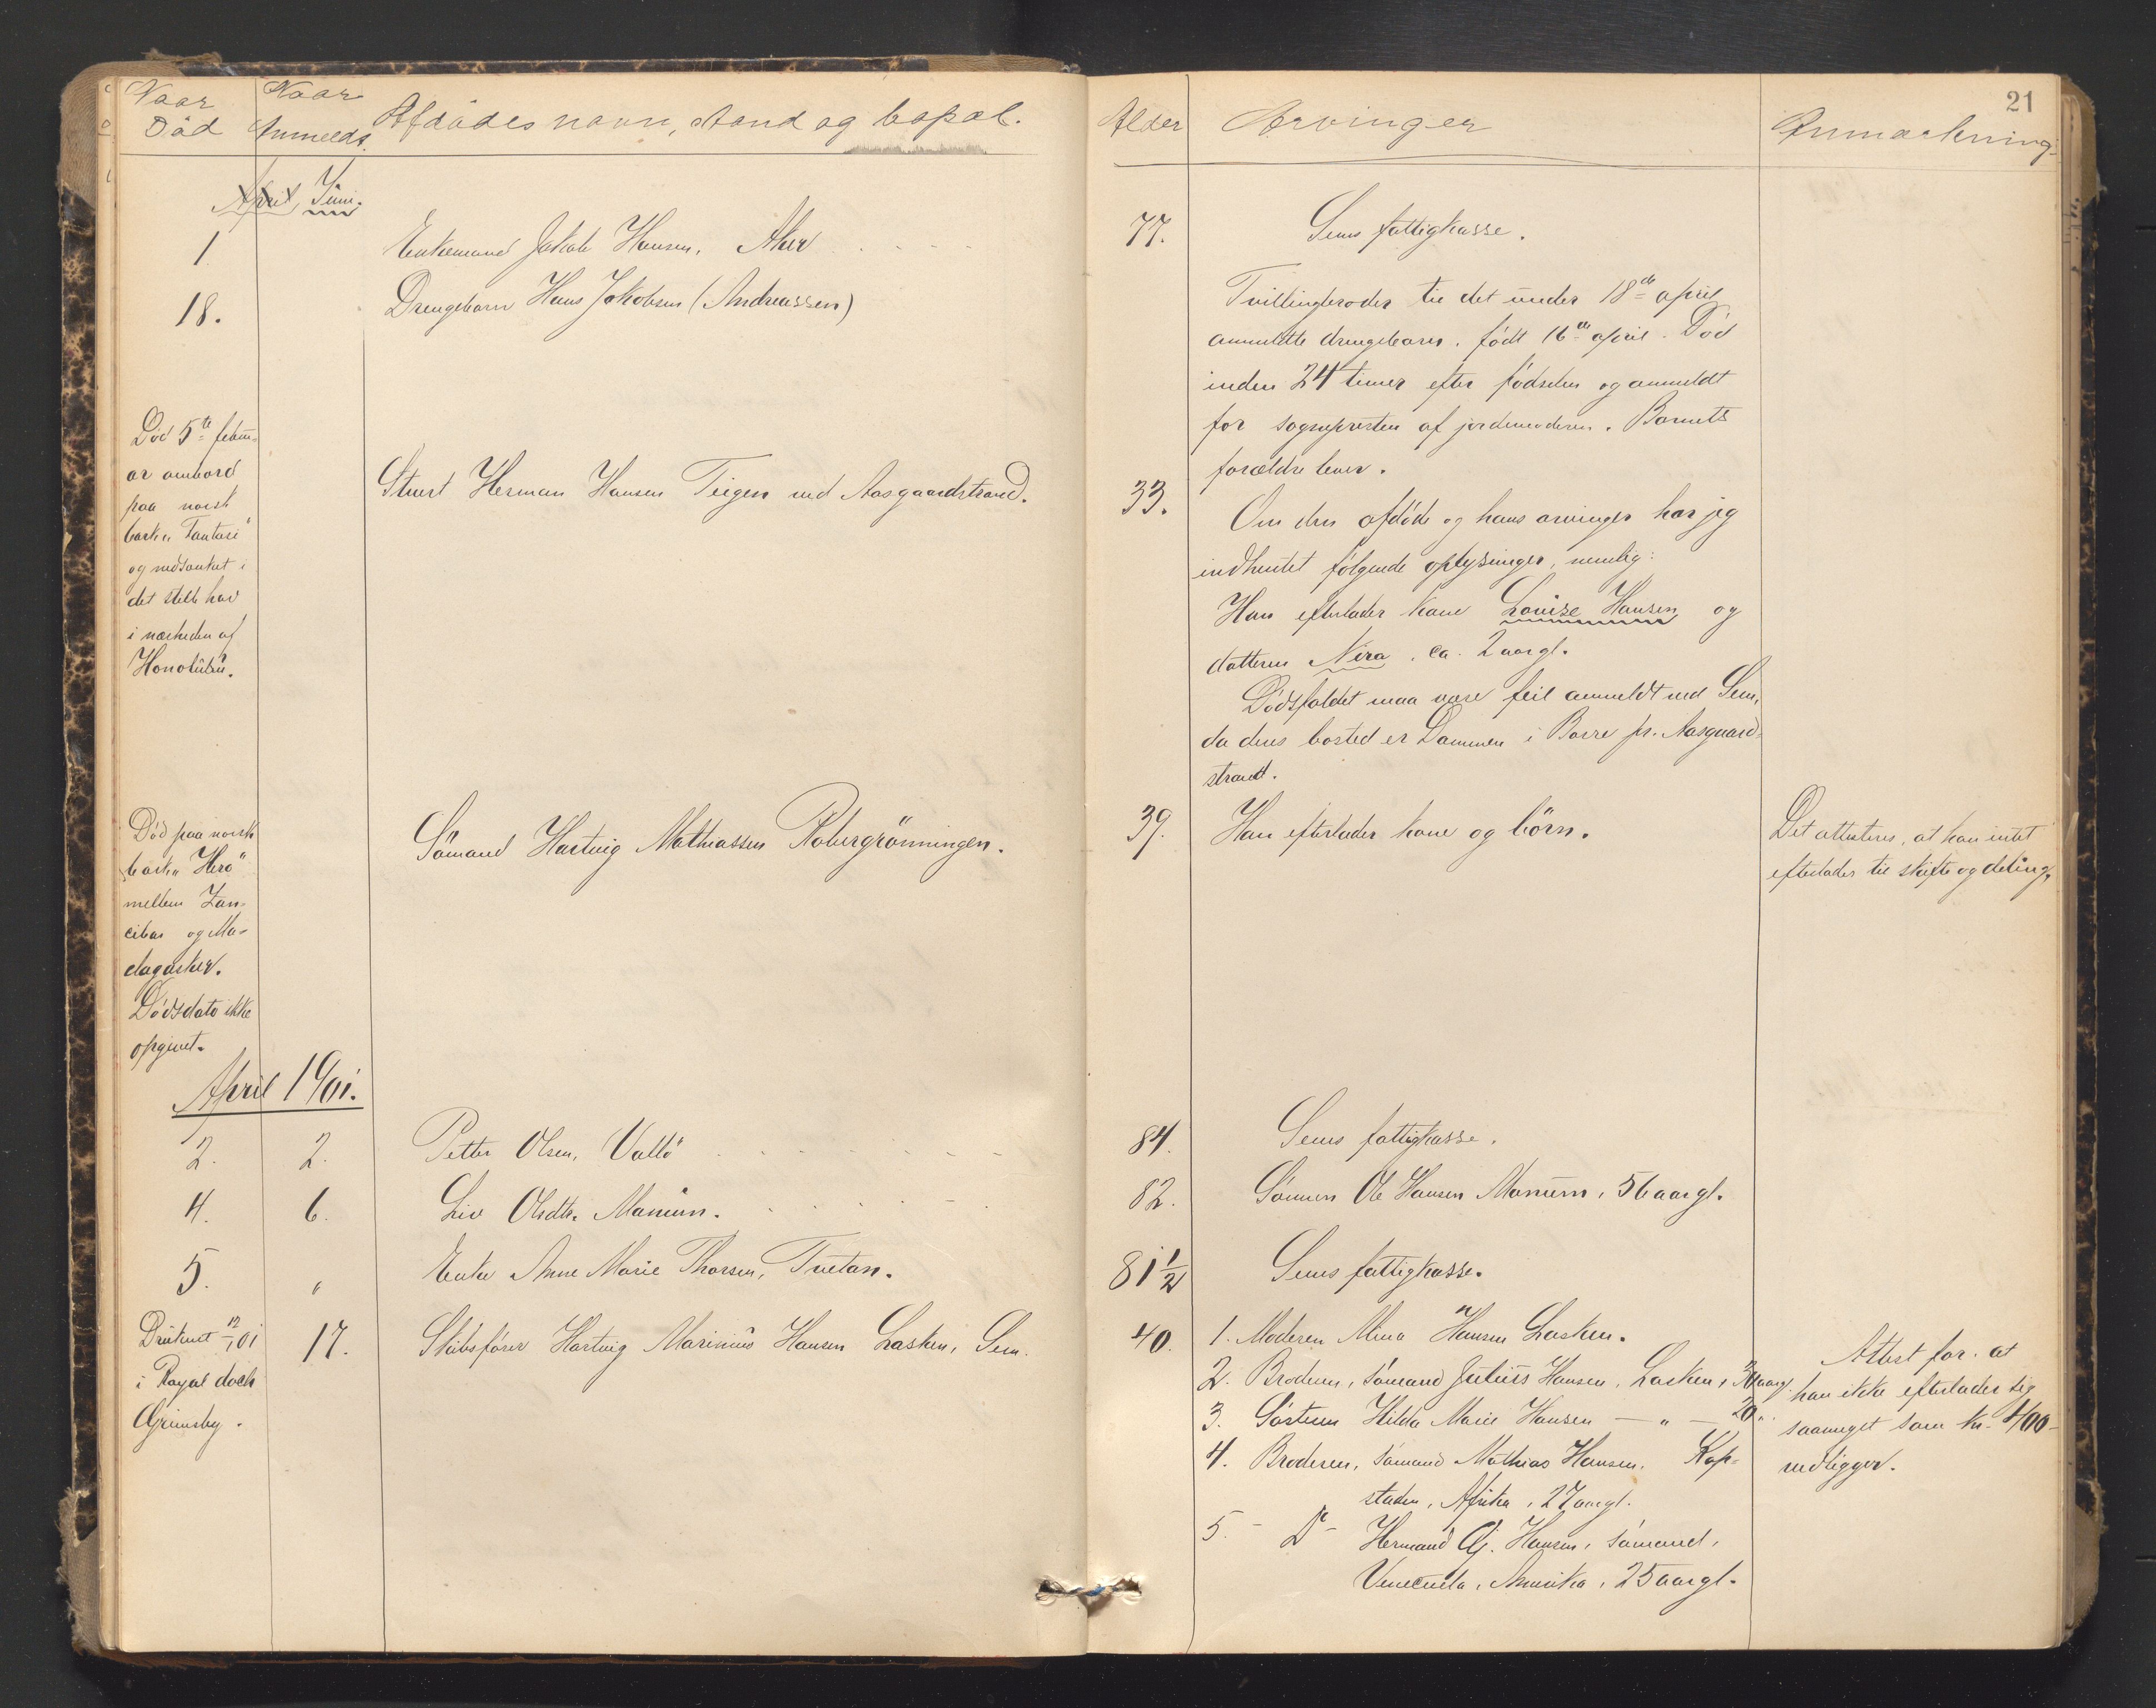 Naar Død
Naar Anmeldt.
Afdødes navn, stand og bopæl.
Alder
Arvinger
Anmærkning
21
April Juni.
1
Enkemand Jakob Hansen, Aker
77.
Sems fattigkasse.
18.
Drengebarn Hans Jakobsen (Andreassen)
Tvillingbroder til det under 18de april
anmeldte drengebarn. født 16de april. Død
inden 24 timer efter fødselen og anmeldt
for sognepresten af jordemoderen. Barnets
forældre lever.
Død 5te febru-
ar ombord
paa norsk
bark „Fantasi"
og nedsænket i
det stille hav
i nærheden af
Honolulu.
Stuert Herman Hansen Teigen ved Aasgaardstrand.
33.
Om den afdøde og hans arvinger har jeg
indhentet følgende oplysninger, nemlig:
Han efterlader kone Louise Hansen og
datteren Nira, ca. 2 aar gl.
Dødsfaldet maa være feil anmeldt ved Sem,
da deres bosted er Dammen i Borre pr. Aasgaard-
strand.
Død paa norsk
bark „Hero"
mellem Zan-
cibar og Ma-
dagaskar.
Dødsdato ikke
opgivet.
Sömand Hartvig Mathiassen Robergrönningen.
39.
Han efterlader kone og børn.
Det attesteres, at han intet
efterlader til skifte og deling.
April 1901.
2.
2.
Petter Olsen, Vallö
84.
Sems fattigkasse.
4.
6.
Liv Olsdtr. Manum.
82.
Sønnen Ole Hansen Manum, 56 aar gl.
5.
"
Enke Anne Marie Thorsen, Tuetan.
81 1/2
Sems fattigkasse.
Druknet 12/ 01
i Royal dock
Grimsby.
17.
Skibsfører Hartvig Marinius Hansen Lasken, Sem.
40.
1. Moderen Mina Hansen Lasken.
2. Broderen, sømand Julius Hansen, Lasken, 30 aar gl.
3. Søsteren Hilda Marie Hansen — „ — 20 "
4. Broderen, sømand Mathias Hansen, Kap-
staden, Afrika, 27 aar gl.
5. - Do - Hermand Gj. Hansen, sømand,
Venecuela, Amerika, 25 aar gl.
Attest for at
han ikke efterlader sig
saameget som kr. 400-
vedligger.